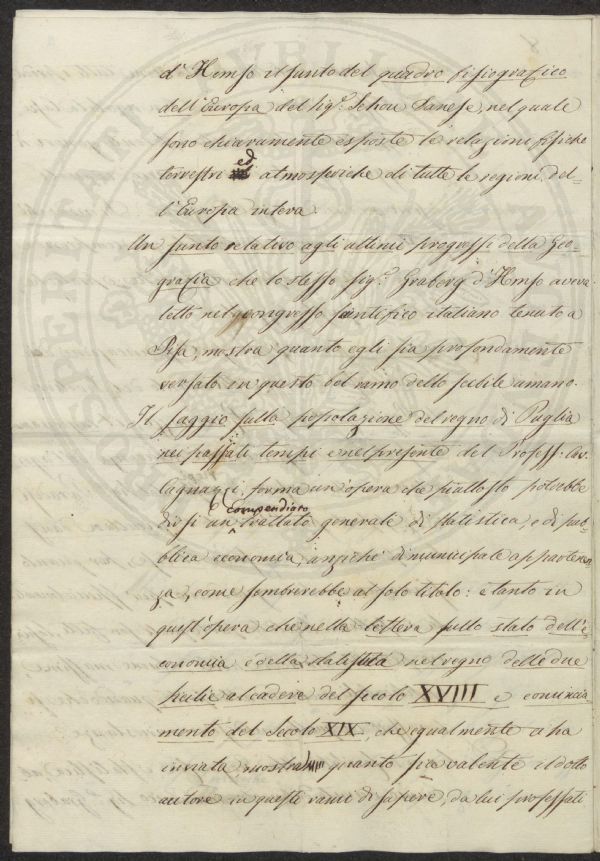 d'Hemso il sunto del quadro fisiografico
dell'Europa del Sig.r Schou Danese, nel quale
sono chiaramente esposte le relazioni fisiche
terrestri ed atmosferiche di tutte le regioni del-
l'Europa intera.
Un sunto relativo agli ultimi progressi della Geo-
grafia che lo stesso Sig.r Graberg d'Hemso aveva
letto nel congresso scientifico italiano tenuto a
Pisa, mostra quanto egli sia profondamente
versato in questo bel ramo dello scibile umano.
Il saggio sulla popolazione del regno di Puglia
nei passati tempi e nel presente del Profess. Cav.
Cagnazzi, forma un opera che piuttosto potrebbe
dirsi un compendioso trattato generale di statistica, e di pub-
blica economia, anziché di municipale appartenen-
za, come sembrerebbe al solo titolo: e tanto in
quest'opera che nella lettera sullo stato dell'e-
conomia e della statistica nel regno delle due
Sicilie al cadere del secolo XVIII e comincia-
mento del Secolo XIX, che egualmente ci ha
inviata mostra quanto sia valente il dotto
autore in questi rami di sapere, da lui professati